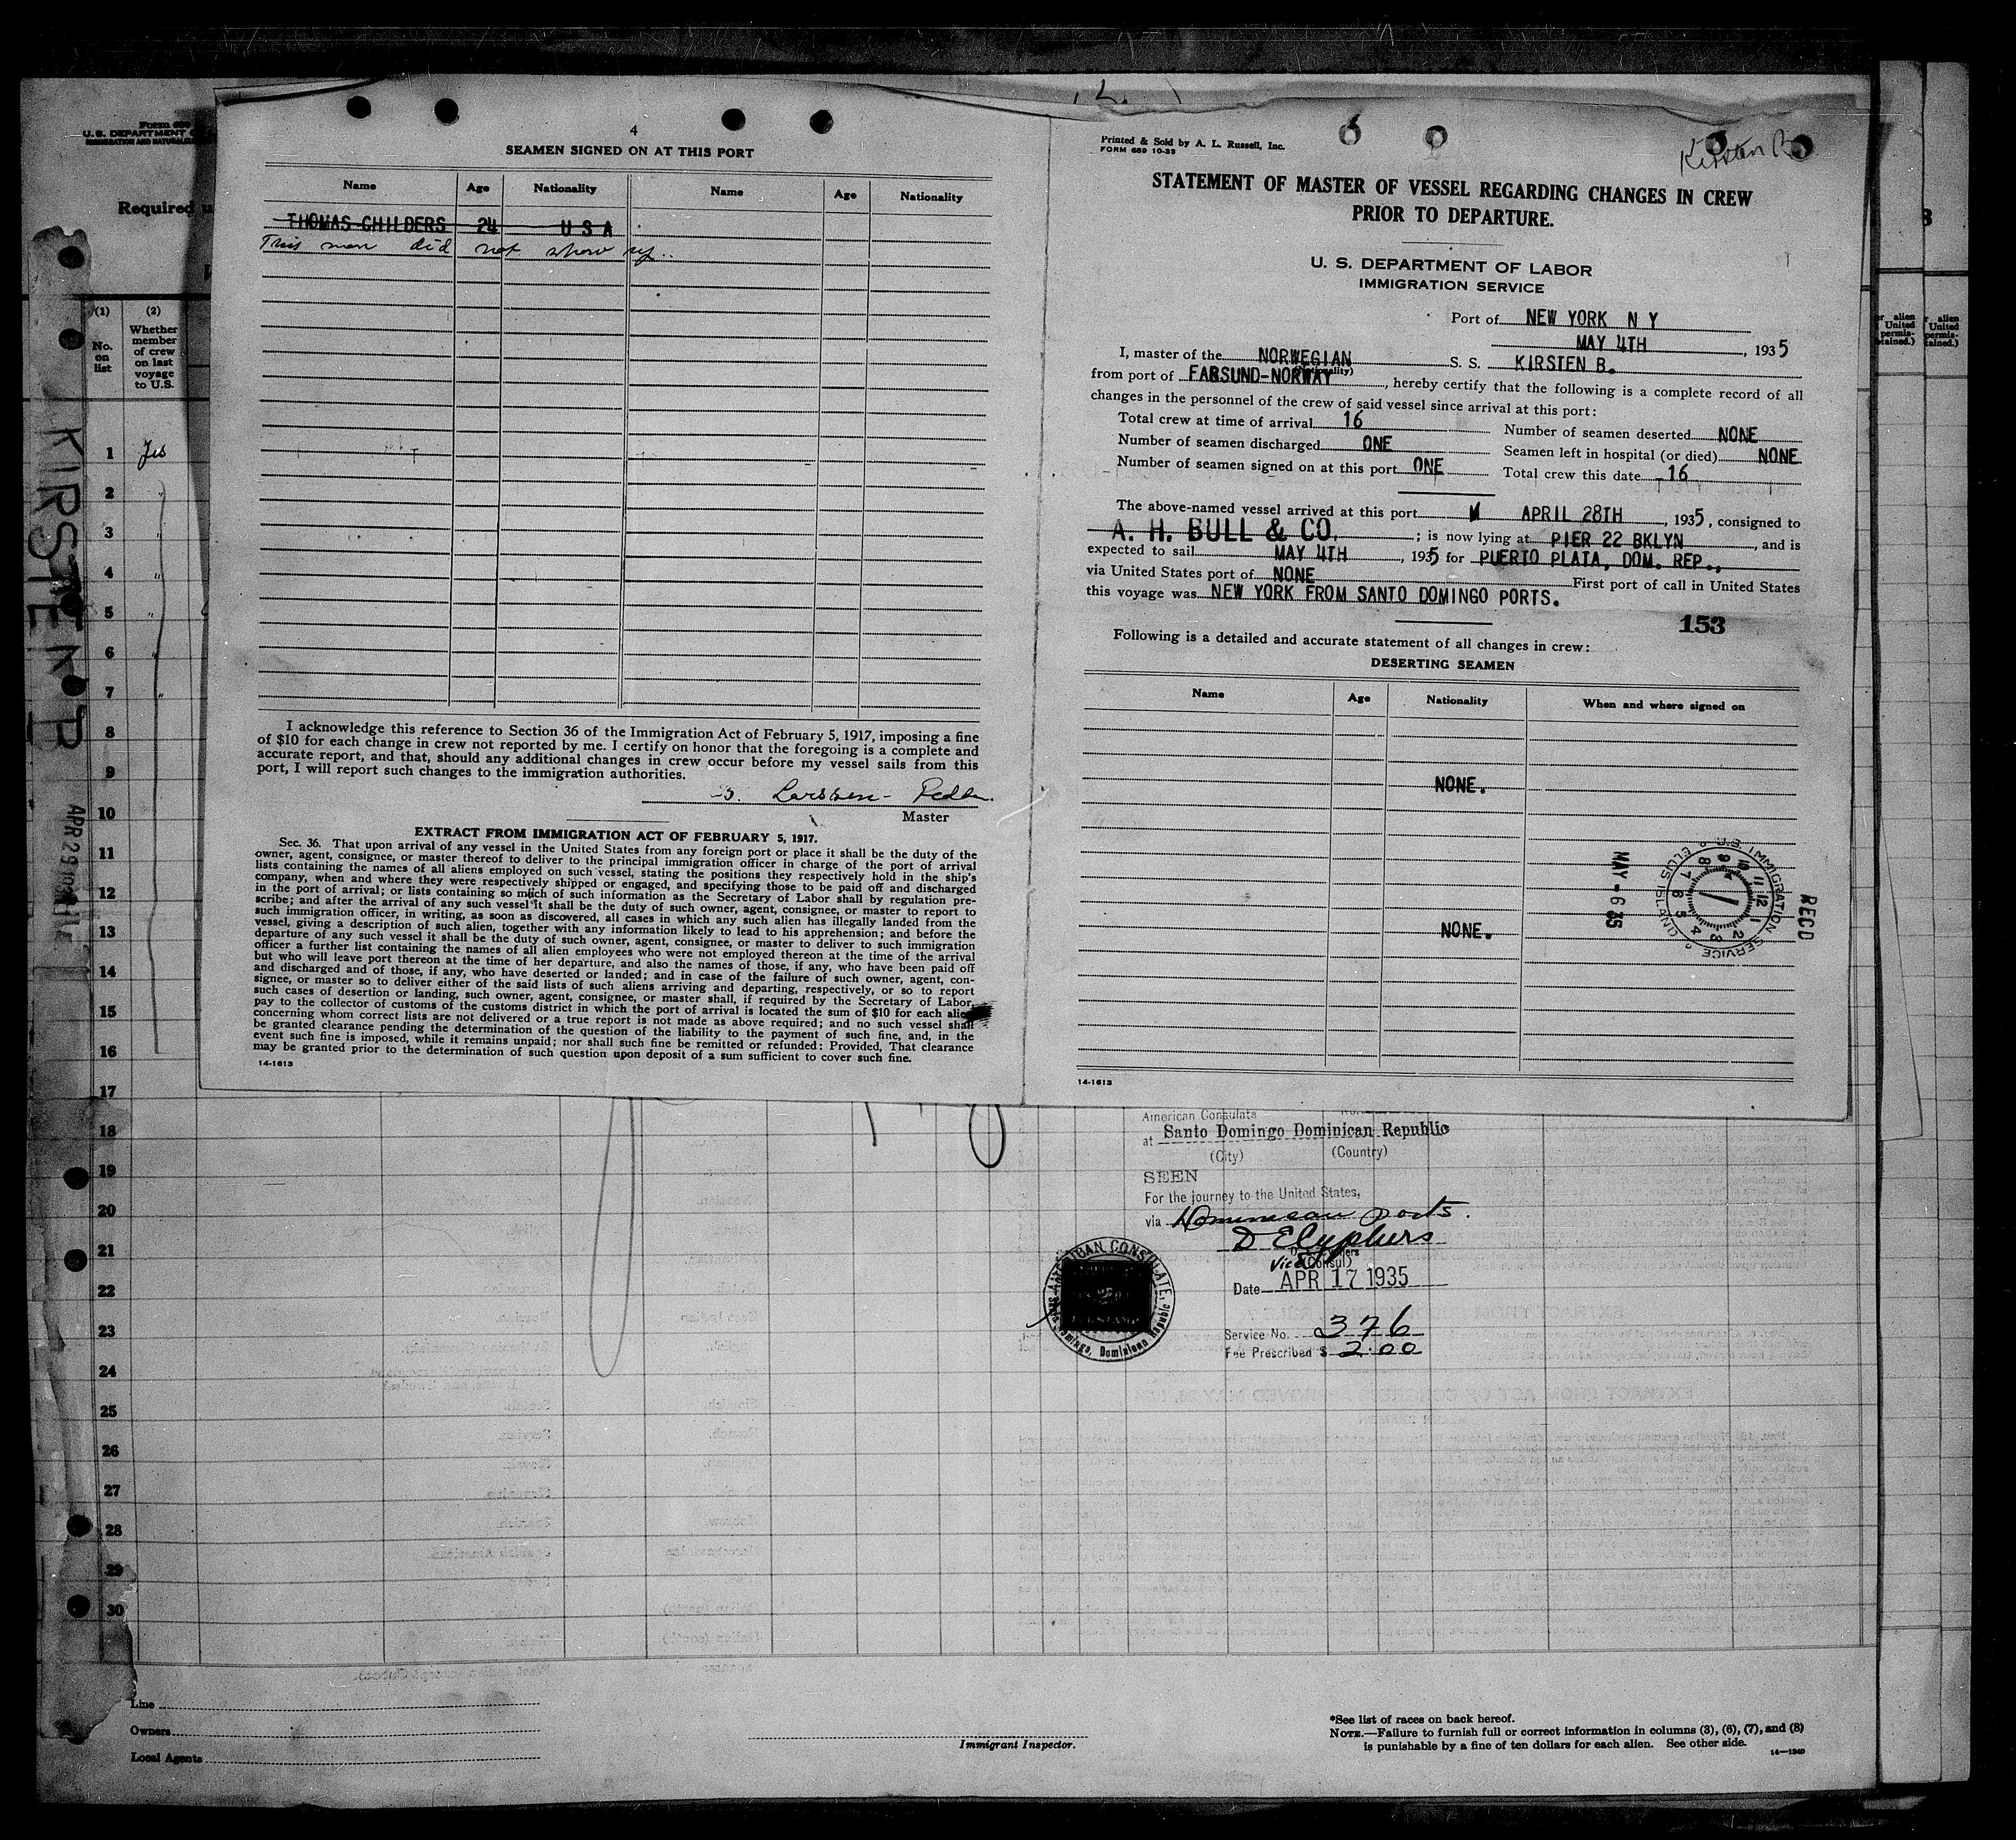 4
SEAMEN SIGNED ON AT THIS PORT
Name Age Nationality Name Age Nationality
THOMAS CHILDERS 24 U S A
This man did not show up..
I acknowledge this reference to Section 36 of the Immigration Act of February 5, 1917, imposing a fine
of $10 for each change in crew not reported by me. I certify on honor that the foregoing is a complete and
accurate report, and that, should any additional changes in crew occur before my vessel sails from this
port, I will report such changes to the immigration authorities.
Larssen-
Master
EXTRACT FROM IMMIGRATION ACT OF FEBRUARY 5, 1917.
Sec. 36. That upon arrival of any vessel in the United States from any foreign port or place it shall be the duty of the
owner, agent, consignee, or master thereof to deliver to the principal immigration officer in charge of the port of arrival
lists containing the names of all aliens employed on such vessel, stating the positions they respectively hold in the ship's
company, when and where they were respectively shipped or engaged, and specifying those to be paid off and discharged
in the port of arrival; or lists containing so much of such information as the Secretary of Labor shall by regulation pre-
scribe; and after the arrival of any such vessel it shall be the duty of such owner, agent, consignee, or master to report to
such immigration officer, in writing, as soon as discovered, all cases in which any such alien has illegally landed from the
vessel, giving a description of such alien, together with any information likely to lead to his apprehension; and before the
departure of any such vessel it shall be the duty of such owner, agent, consignee, or master to deliver to such immigration
officer a further list containing the names of all alien employees who were not employed thereon at the time of the arrival
but who will leave port thereon at the time of her departure, and also the names of those, if any, who have been paid off
and discharged and of those, if any, who have deserted or landed; and in case of the failure of such owner, agent, con-
signee, or master so to deliver either of the said lists of such aliens arriving and departing, respectively, or so to report
such cases of desertion or landing, such owner, agent, consignee, or master shall, if required by the Secretary of Labor,
pay to the collector of customs of the customs district in which the port of arrival is located the sum of $10 for each alien
concerning whom correct lists are not delivered or a true report is not made as above required; and no such vessel shall
be granted clearance pending the determination of the question of the liability to the payment of such fine, and, in the
event such fine is imposed, while it remains unpaid; nor shall such fine be remitted or refunded: Provided, That clearance
may be granted prior to the determination of such question upon deposit of a sum sufficient to cover such fine.
14-1613
Printed & Sold by A. L. Russell, Inc.
FORM 689 10-33
Kirsten B
STATEMENT OF MASTER OF VESSEL REGARDING CHANGES IN CREW
PRIOR TO DEPARTURE.
U. S. DEPARTMENT OF LABOR
IMMIGRATION SERVICE
Port of NEW YORK N Y
MAY 4TH, 1935
I, master of the NORWEGIAN S. S. KIRSTEN B.
(Nationality)
from port of FARSUND-NORWAY, hereby certify that the following is a complete record of all
changes in the personnel of the crew of said vessel since arrival at this port:
Total crew at time of arrival 16 Number of seamen deserted NONE
Number of seamen discharged ONE Seamen left in hospital (or died) NONE
Number of seamen signed on at this port ONE Total crew this date 16
The above-named vessel arrived at this port APRIL 28TH, 1935, consigned to
A. H. BULL & CO. ; is now lying at PIER 22 BKLYN, and is
expected to sail MAY 4TH, 1935 for PUERTO PLATA, DOM. REP.,
via United States port of NONE First port of call in United States
this voyage was NEW YORK FROM SANTO DOMINGO PORTS.
153
Following is a detailed and accurate statement of all changes in crew:
DESERTING SEAMEN
Name Age Nationality When and where signed on
NONE.
NONE.
RECD
U.S. IMMIGRATION SERVICE
MAY - 6 35
14-1613
Form 689
U. S. DEPARTMENT
Required u
(1) (2)
No. on list
Whether member of crew on last voyage to U.S.
1 Yes
2 "
3 "
4 "
5 "
6 "
7 "
8
9
10
11
12
13
14
15
16
17
18
19
20
21
22
23
24
25
26
27
28
29
30
American Consulate
at Santo Domingo Dominican Republic
(City) (Country)
SEEN
For the journey to the United States,
via Dominican ports.
Vice (Consul)
Date APR 17 1935
Service No. 376
Fee Prescribed $ 2.00
AMERICAN CONSULATE,
Santo Domingo, Dominican Republic
Line
Owners
Local Agents
Immigrant Inspector.
*See list of races on back hereof.
NOTE.—Failure to furnish full or correct information in columns (3), (6), (7), and (8)
is punishable by a fine of ten dollars for each alien. See other side.
14—1240